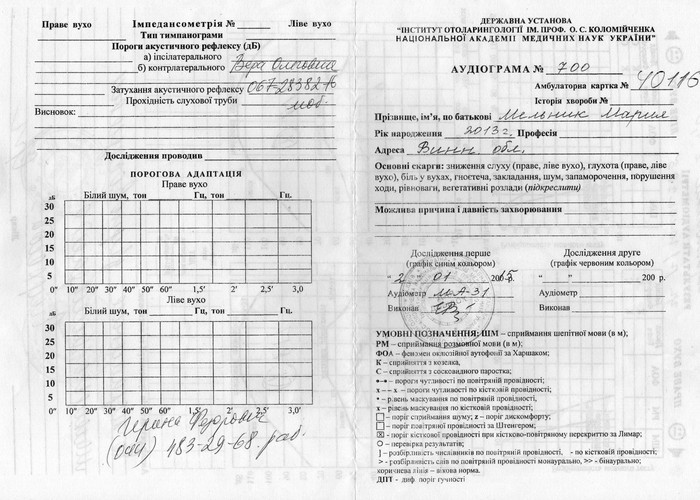 Праве вухо Імпедансометрія № Ліве вухо
Тип тимпанограми
Пороги акустичного рефлексу (дБ)
а) іпсілатерального
б) контрлатерального Вера
Затухання акустичного рефлексу
Прохідність слухової труби моб.
Висновок:
Дослідження проводив
ПОРОГОВА АДАПТАЦІЯ
Праве вухо
дБ Білий шум, тон Гц, тон Гц
30
25
20
15
10
5
0
10" 20" 30" 40" 50" 60" 1,5' 2' 2,5' 3,0
Ліве вухо
дБ Білий шум, тон Гц, тон Гц
30
25
20
15
10
5
0
5" 10" 20" 30" 40" 50" 60" 1,5' 2' 2,5' 3,0'
(044) 483-29-68 раб.
ДЕРЖАВНА УСТАНОВА
"ІНСТИТУТ ОТОЛАРИНГОЛОГІЇ ІМ. ПРОФ. О. С. КОЛОМІЙЧЕНКА
НАЦІОНАЛЬНОЇ АКАДЕМІЇ МЕДИЧНИХ НАУК УКРАЇНИ"
АУДІОГРАМА № 700
Амбулаторна картка № 40116
Історія хвороби №
Прізвище, ім'я, по батькові Мельник Мария
Рік народження 2013г. Професія
Адреса Винн обл.
Основні скарги: зниження слуху (праве, ліве вухо), глухота (праве, ліве
вухо), біль у вухах, гноєтеча, закладання, шум, запаморочення, порушення
ходи, рівноваги, вегетативні розлади (підкреслити)
Можлива причина і давність захворювання
Дослідження перше
(графік синім кольором)
" 2 " 01 2015 р.
Аудіометр МА-31
Виконав
Дослідження друге
(графік червоним кольором)
" " 200 р.
Аудіометр
Виконав
УМОВНІ ПОЗНАЧЕННЯ: ШМ – сприймання шепітної мови (в м);
РМ – сприймання розмовної мови (в м);
ФОА – феномен оклюзійної аутофонії за Харшаком;
К – сприйняття з козелка,
С – сприйняття з сосковидного паростка;
•–• – пороги чутливості по повітряній провідності;
х – – х – пороги чутливості по кістковій провідності;
• – рівень маскування по повітряній провідності,
х – рівень маскування по кістковій провідності;
– поріг сприймання шуму; z – поріг дискомфорту;
– поріг повітряної провідності за Штенгером;
– поріг кісткової провідності при кістково-повітряному перекритті за Лимар;
О – перевірка результатів;
] – розбірливість числівників по повітряній провідності, - по кістковій провідності;
> - розбірливість слів по повітряній провідності монаурально, >> - бінаурально;
коричнева лінія – вікова норма.
ДПТ - диф. поріг гучності